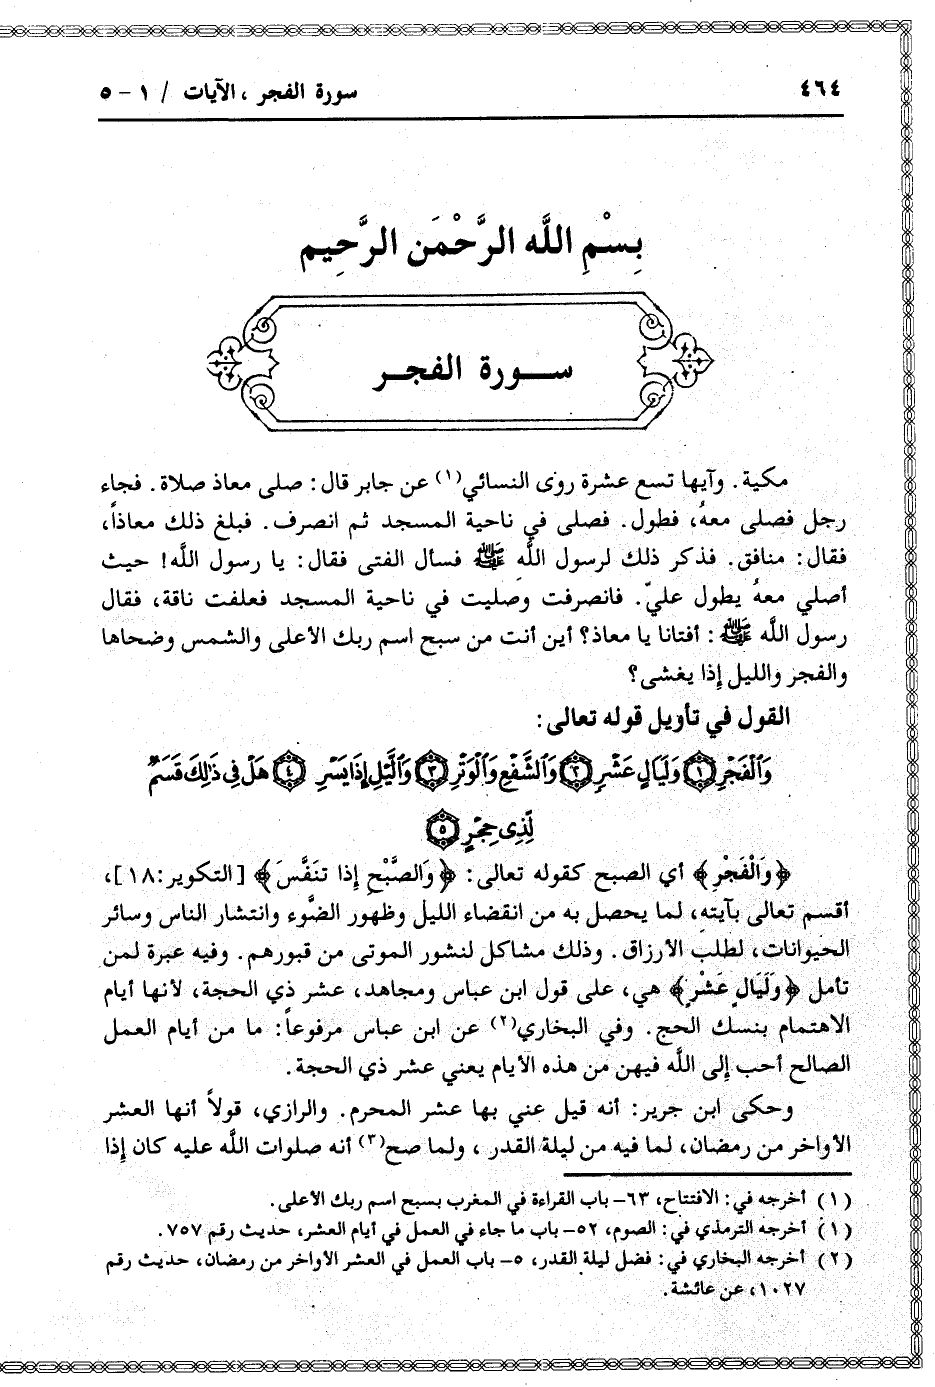 ٤٦٤
سورة الفجر ، الآيات / ١ - ٥
بِسْمِ اللَّه الرَّحْمَن الرَّحِيم
ســورة الفجــر
مكية. وآيها تسع عشرة روى النسائي(١) عن جابر قال: صلى معاذ صلاة. فجاء
رجل فصلى معهُ، فطول. فصلى في ناحية المسجد ثم انصرف. فبلغ ذلك معاذاً،
فقال: منافق. فذكر ذلك لرسول اللَّه ﷺ فسأل الفتى فقال: يا رسول اللَّه! حيث
أصلي معهُ يطول عليّ. فانصرفت وصليت في ناحية المسجد فعلفت ناقة، فقال
رسول اللَّه ﷺ: أفتانا يا معاذ؟ أين أنت من سبح اسم ربك الأعلى والشمس وضحاها
والفجر والليل إذا يغشى؟
القول في تأويل قوله تعالى:
وَٱلْفَجْرِ ١ وَلَيَالٍ عَشْرٍ ٢ وَٱلشَّفْعِ وَٱلْوَتْرِ ٣ وَٱلَّيْلِ إِذَا يَسْرِ ٤ هَلْ فِى ذَٰلِكَ قَسَمٌ
لِّذِى حِجْرٍ ٥
﴿وَالْفَجْرِ﴾ أي الصبح كقوله تعالى: ﴿وَالصُّبْحِ إِذَا تَنَفَّسَ﴾ [التكوير:١٨]،
أقسم تعالى بآيته، لما يحصل به من انقضاء الليل وظهور الضَّوء وانتشار الناس وسائر
الحيوانات، لطلب الأرزاق. وذلك مشاكل لنشور الموتى من قبورهم. وفيه عبرة لمن
تأمل ﴿وَلَيَالٍ عَشْرٍ﴾ هي، على قول ابن عباس ومجاهد، عشر ذي الحجة، لأنها أيام
الاهتمام بنسك الحج. وفي البخاري(٢) عن ابن عباس مرفوعاً: ما من أيام العمل
الصالح أحب إلى اللَّه فيهن من هذه الأيام يعني عشر ذي الحجة.
وحكى ابن جرير: أنه قيل عني بها عشر المحرم. والرازي، قولاً أنها العشر
الأواخر من رمضان، لما فيه من ليلة القدر ، ولما صح(٣) أنه صلوات اللَّه عليه كان إذا
(١) أخرجه في: الافتتاح، ٦٣- باب القراءة في المغرب بسبح اسم ربك الأعلى.
(١) أخرجه الترمذي في: الصوم، ٥٢- باب ما جاء في العمل في أيام العشر، حديث رقم ٧٥٧.
(٢) أخرجه البخاري في: فضل ليلة القدر، ٥- باب العمل في العشر الأواخر من رمضان، حديث رقم
١٠٢٧، عن عائشة.